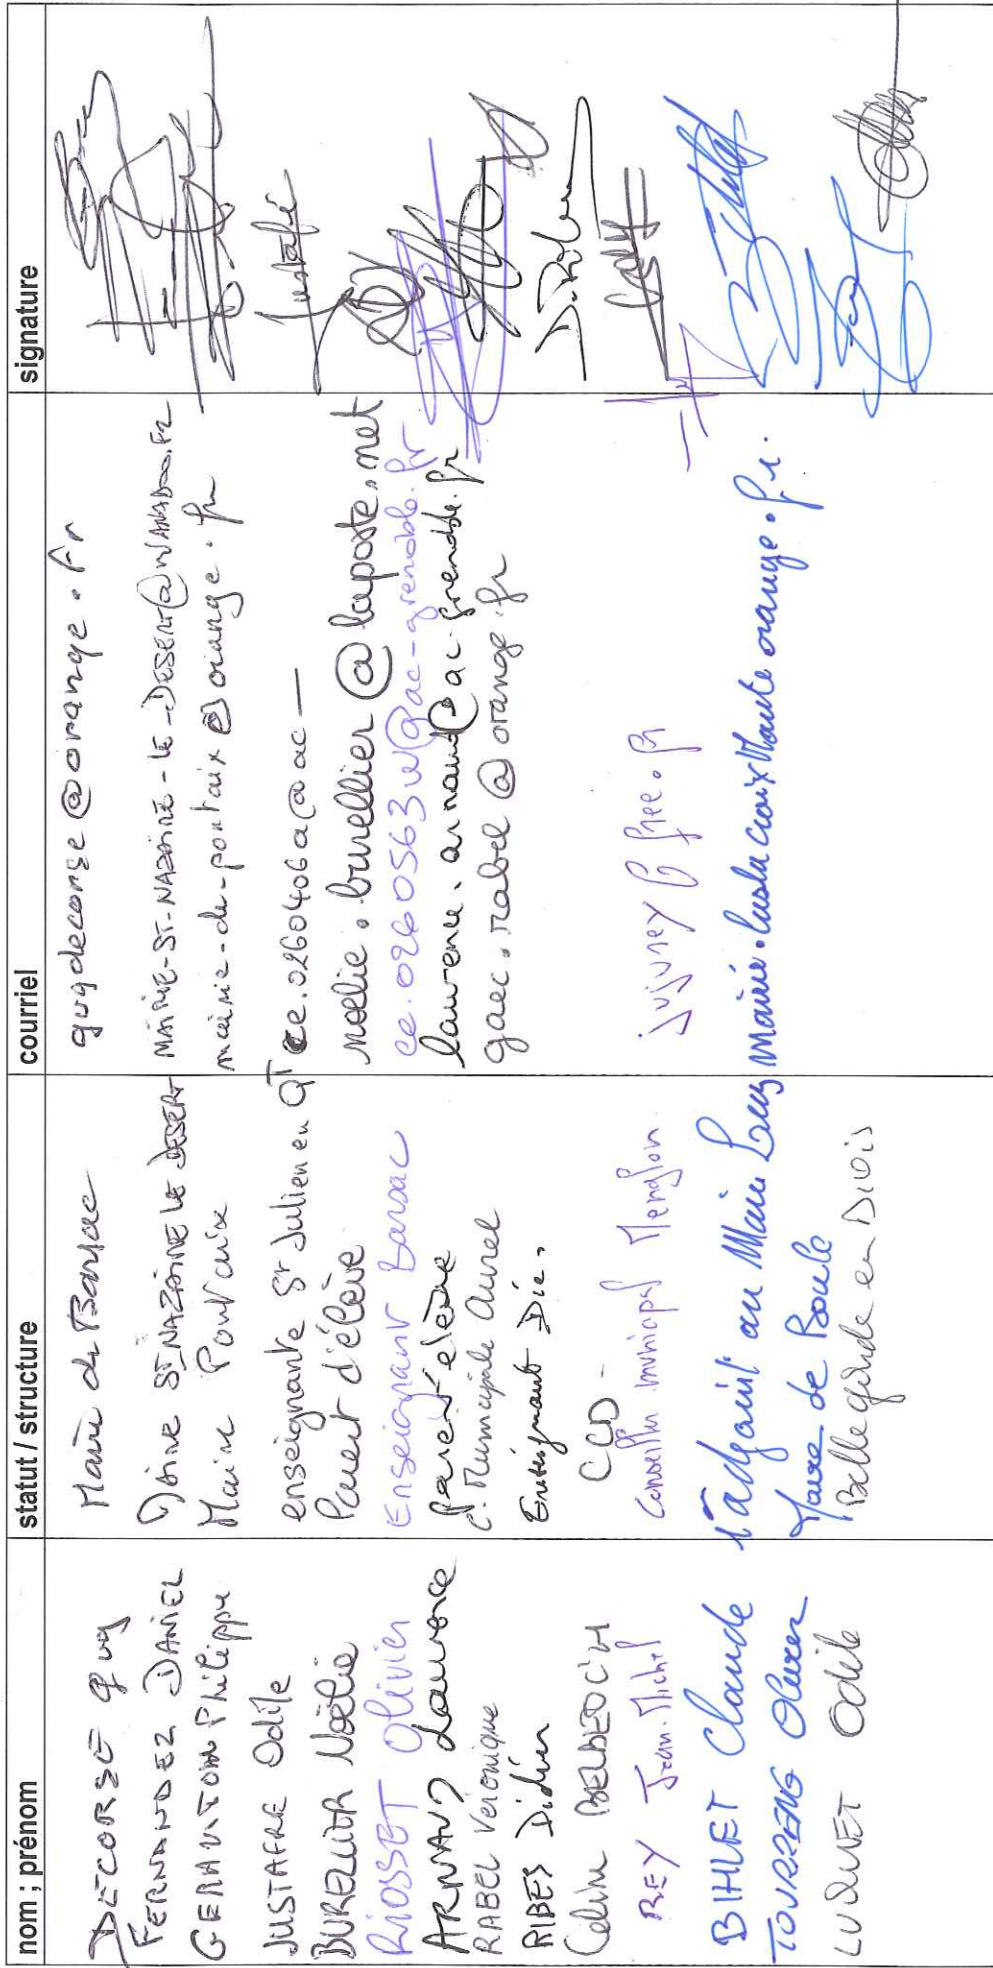 nom ; prénom statut / structure courriel signature
DECORSE guy Maire de Barsac guydecorse@orange.fr
FERNANDEZ DANIEL MAIRIE ST NAZAIRE LE DESERT MAIRIE-ST-NAZAIRE-LE-DESERT@WANADOO.FR
Philippe Maire Pontaix mairie-de-pontaix@orange.fr
JUSTAFRE Odile enseignante St Julien en QT ce.0260406a@ac
Noëlie Parent d'élève noelie.burellier@laposte.net
RIOSSET Olivier Enseignant Barsac ce.0260563w@ac-grenoble.fr
ARNAUD Laurence parent élève laurence.arnaud@ac-grenoble.fr
RABEL Véronique C. Municipale Aurel gaec.rabel@orange.fr
RIBES Didier Enseignant Die.
CCD -
REY Jean-Michel Conseiller municipal Menglon jujurey@free.fr
BIHLET Claude l'adjoint au Maire Luc
Olivier Maire de Boulc
Odile Bellegarde en Diois